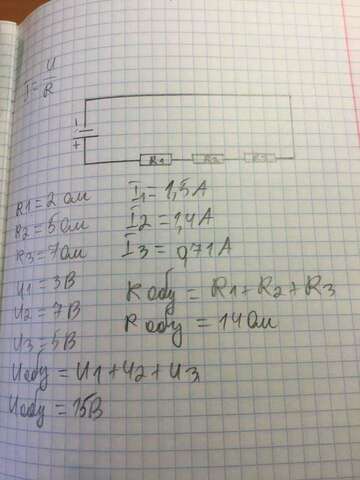 I = U/R
- +
R1 R2 R3
R1 = 2 Ом
R2 = 5 Ом
R3 = 7 Ом
U1 = 3В
U2 = 7В
U3 = 5В
Uобщ = U1 + U2 + U3
Uобщ = 15В
I1 = 1,5 А
I2 = 1,4 А
I3 = 0,71 А
Rобщ = R1 + R2 + R3
Rобщ = 14 Ом